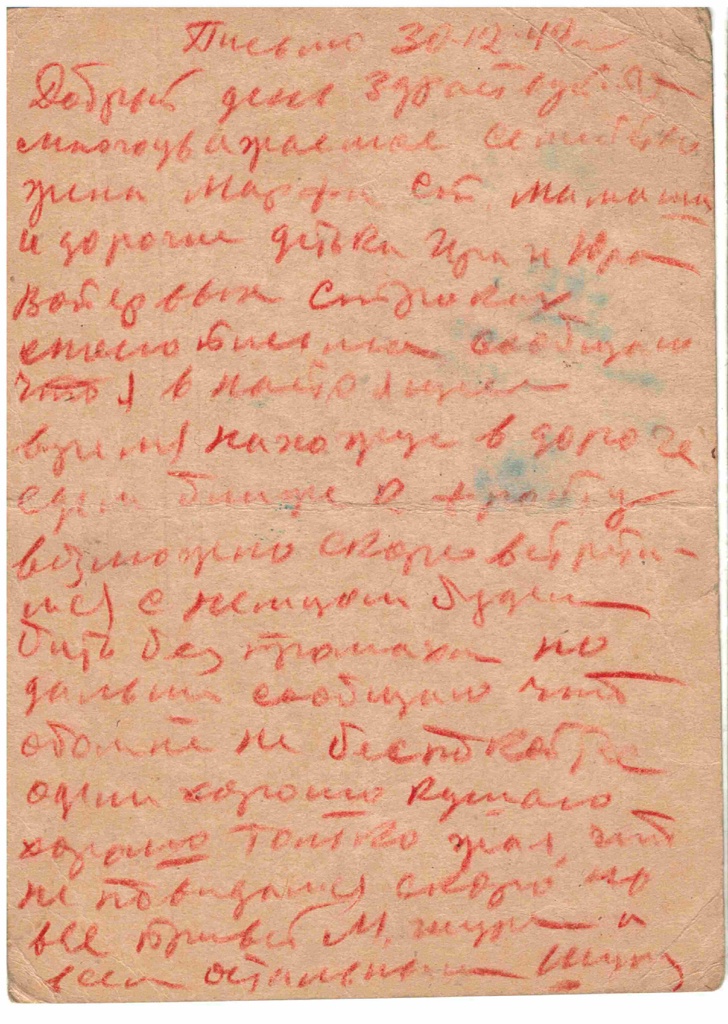 Письмо 30-12-4
Добрый день Здраствуйте
многоуважаемое семейство
жена Марфа Ст. мамаша
и дорогие детьки Ира и Юра
Вопервых строках
своего письма сообщаю
что я в настоящее
время нахожус в дороге
едем ближе к фронту
возможно скоро встрети-
мся с немцом будем
бить без промаха но
дальши сообщаю что
обомне не беспокойтес
одени хорошо кушаю
хорошо толтко жал что
не повидался скоро но
все привет М. и
всем остальным